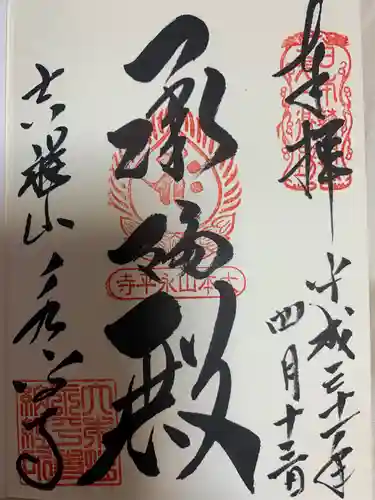 奉拝
平成三十一年
四月十三日
承陽殿
大本山永平寺
吉祥山永平寺